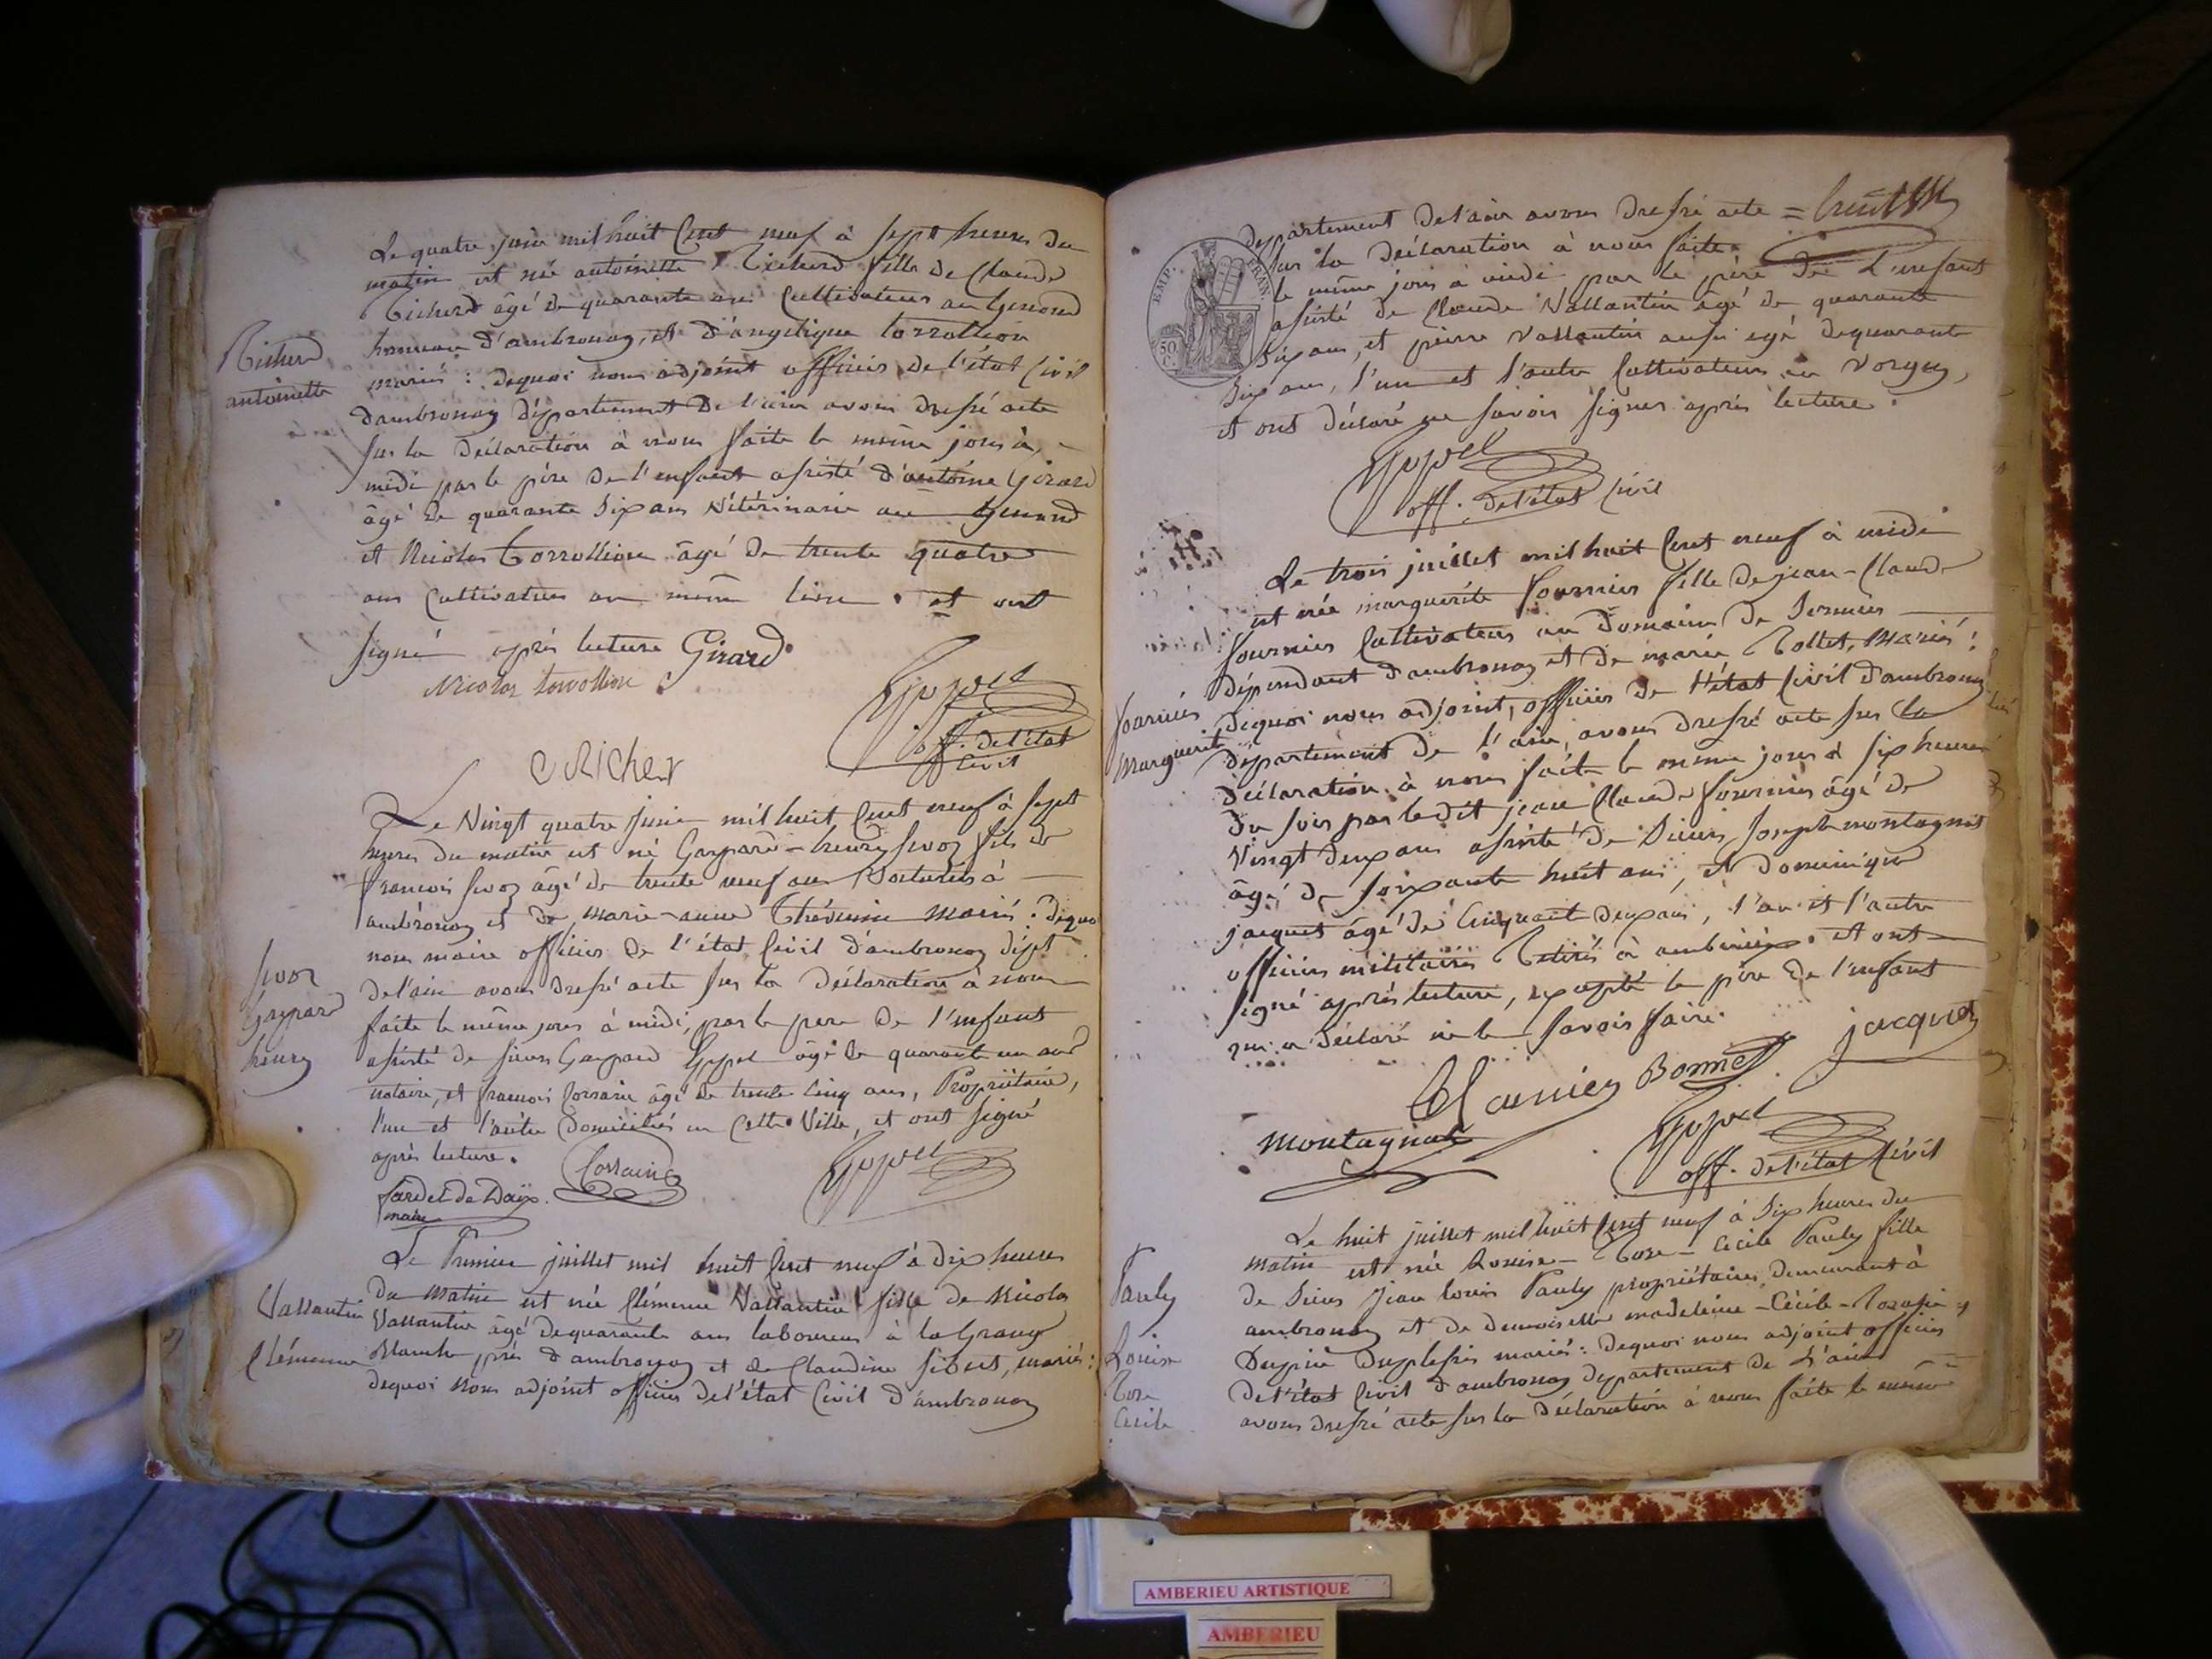 Le quatre juin mil huit Cent neuf à sept heures du
matin est née antoinette Richerd fille de Claude
Richerd âgé de quarante ans Cultivateur au Genoud
hameau d'ambronay, et d'angelique torrollion
mariés : dequoi nous adjoint officier de l'état Civil
dambronay département de l'ain avons dressé acte
sur la déclaration à nous faite le même jour à
midi par le père de l'enfant assisté d'antoine Girard
âgé de quarante six ans vétérinaire au Genoud
et Nicolas torrollion âgé de trente quatre
ans Cultivateur au même lieu. et ont
signé après lecture Girard
Nicolas torrollion
off. de l'état
Civil
C Richer
Richerd
antoinette
Le Vingt quatre juin mil huit Cent neuf à sept
heures du matin est né Gaspard-henry fils de
françois âgé de trente neuf ans à
ambronay et de marie-anne Thévenin mariés : dequoi
nous maire officier de l'état Civil d'ambronay dépt
de l'ain avons dressé acte sur la déclaration à nous
faite le même jour à midi, par le pere de l'enfant
assisté de sieurs Gaspard âgé de quarante un ans
notaire, et françois âgé de trente cinq ans, Propriétaire,
l'un et l'autre domiciliés en Cette Ville, et ont signé
après lecture.
maire
Gaspard
henry
Le Premier juillet mil huit Cent neuf à dix heures
du matin est née Clémence Vallantin fille de Nicolas
Vallantin âgé de quarante ans laboureur à la Grange
Blanche près d'ambronay et de Claudine mariés :
dequoi nous adjoint officier de l'état Civil d'ambronay
Vallantin
Clémence
EMP. FRAN.
50 C.
département de l'ain avons dressé acte =
sur la déclaration à nous faite
le même jour à midi par le père de l'enfant
assisté de Claude Vallantin âgé de quarante
six ans, et pierre Vallantin aussi agé de quarante
six ans, l'un et l'autre Cultivateurs au Vorgey,
et ont déclaré ne savoir signer après lecture.
off. de l'état Civil
Le trois juillet mil huit Cent neuf à midi
est née marguerite fournier fille de jean-Claude
fournier Cultivateur au domaine de
dépendant d'ambronay et de marie Mariés :
dequoi nous adjoint, officier de l'état Civil d'ambronay
département de l'ain, avons dressé acte sur la
déclaration à nous faite le meme jour à six heures
du soir par ledit jean Claude fournier âgé de
Vingt deux ans assisté de sieurs joseph montagnat
âgé de soixante huit ans, et dominique
jacquet âgé de Cinquante deux ans, l'un et l'autre
officiers militaires Retirés à ambérieux. et ont
signé après lecture, excepté le père de l'enfant
qui a déclaré ne le savoir faire.
Bonnet jacquet
montagnat
off. de l'état Civil
fournier
Marguerite
Le huit juillet mil huit Cent neuf à six heures du
matin est née Louise-Rose-Cécile Pauly fille
de sieur jean louis Pauly propriétaire demeurant à
ambronay et de demoiselle madeleine-Cécile-
Dupin duplessis mariés : dequoi nous adjoint officier
de l'état Civil d'ambronay département de L'ain
avons dressé acte sur la déclaration à nous faite le même
Pauly
Louise
Rose
Cecile
AMBERIEU ARTISTIQUE
AMBERIEU